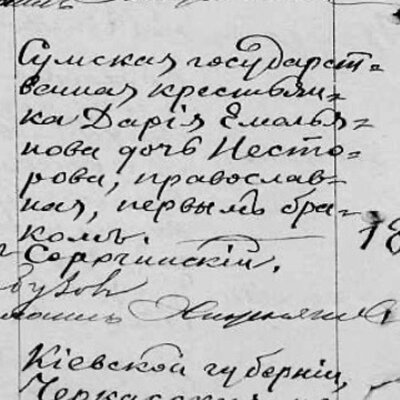 Сумская государст=
венная крестьян=
ка Дарія Емелья=
нова дочь Несто=
рова, православ=
ная, первымъ бра=
комъ.
18
Сорочинскій.
Кіевской губерніи,